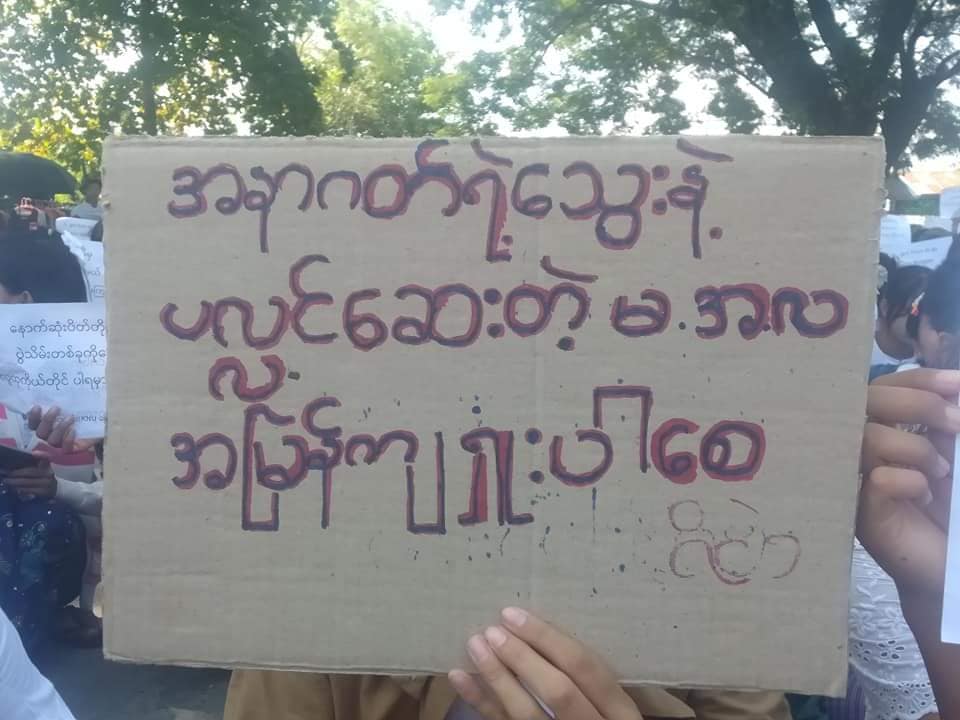 အနာဂတ်ရဲ့သွေးနဲ့
ပလ္လင်ဆေးတဲ့ မ.အ.လ
အမြန်ကျရှုံးပါစေ
နောက်ဆုံးပိတ်တို
ပွဲသိမ်းတစ်ခုကို
ကိုယ်တိုင် ပါရမှာ